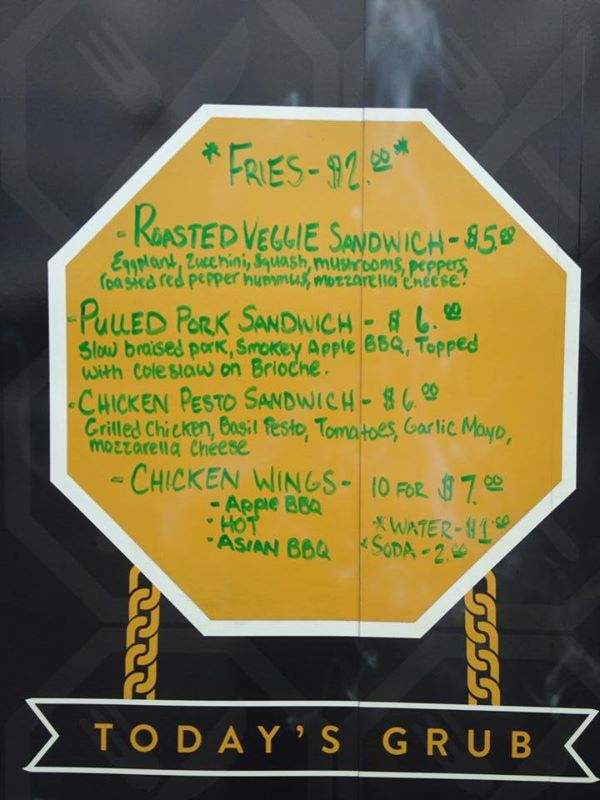 * FRIES - $2.00 *
- ROASTED VEGGIE SANDWICH - $5.00
Eggplant, Zucchini, Squash, mushrooms, peppers,
roasted red pepper hummus, mozzarella cheese.
- PULLED PORK SANDWICH - $6.00
Slow braised pork, Smokey Apple BBQ, Topped
with coleslaw on Brioche.
- CHICKEN PESTO SANDWICH - $6.00
Grilled Chicken, Basil Pesto, Tomatoes, Garlic Mayo,
mozzarella Cheese
- CHICKEN WINGS - 10 FOR $7.00
- Apple BBQ
- HOT
- ASIAN BBQ
* WATER - $1.00
* SODA - 2.00
TODAY'S GRUB